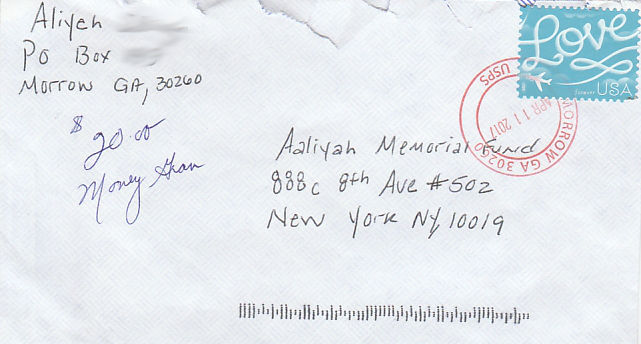 Aliyah
PO Box
Morrow GA, 30260
$ 20.00
Money Gram
Love
forever USA
USPS
APR 11 2017
MORROW GA 30260
Aaliyah Memorial Fund
888c 8th Ave #502
New York NY, 10019